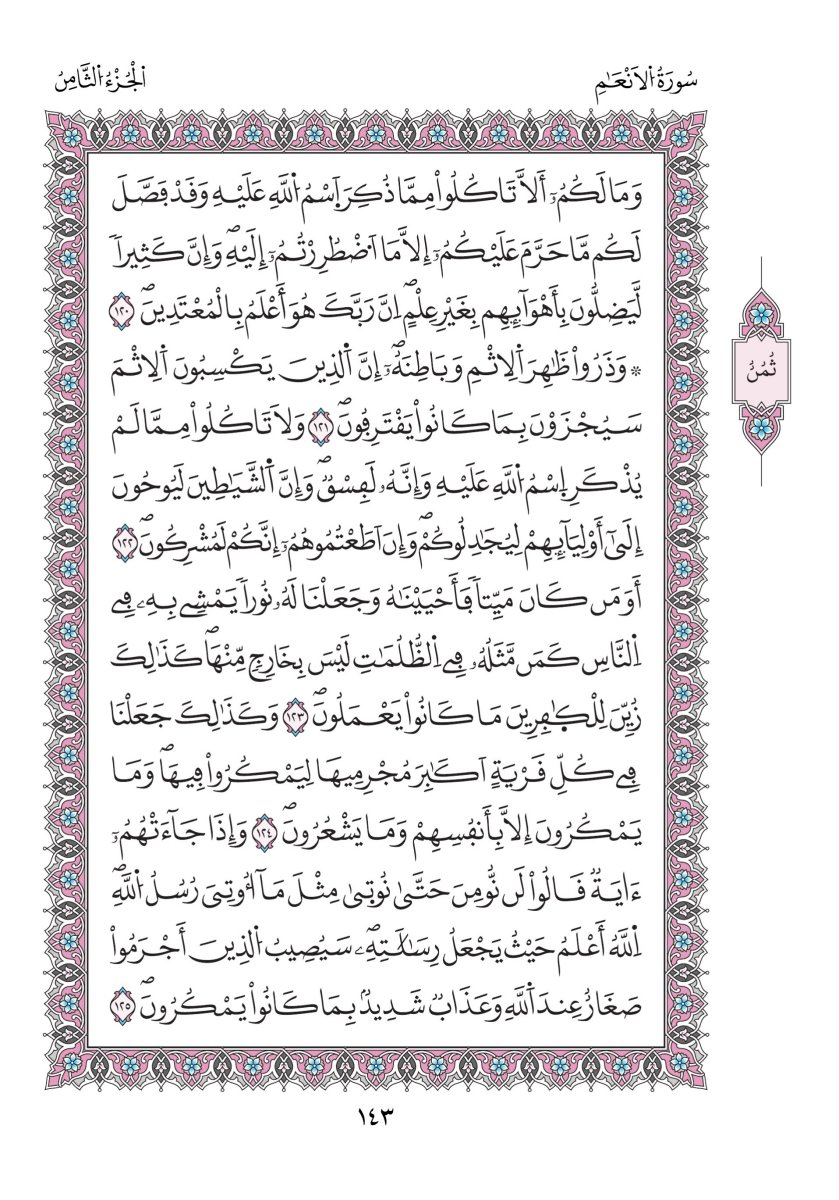 سُورَةُ الَانْعَٰمِ
الْجُزْءُ الثَّامِنُ
وَمَا لَكُمُۥٓ أَلَّا تَاكُلُواْ مِمَّا ذُكِرَ اَسْمُ اُللَّهِ عَلَيْهِ وَقَدْ فَصَّلَ
لَكُم مَّا حَرَّمَ عَلَيْكُمُۥٓ إِلَّا مَا اَضْطُرِرْتُمُۥٓ إِلَيْهِۖ وَإِنَّ كَثِيراٗ
لَّيَضِلُّونَ بِأَهْوَآئِهِم بِغَيْرِ عِلْمٍۖ اِنَّ رَبَّكَ هُوَ أَعْلَمُ بِالْمُعْتَدِينَۖ ١٢٠
* وَذَرُواْ ظَٰهِرَ اَلِاثْمِ وَبَاطِنَهُۥٓۖ إِنَّ اَلذِينَ يَكْسِبُونَ اَلِاثْمَ
سَيُجْزَوْنَ بِمَا كَانُواْ يَقْتَرِفُونَۖ ١٢١ وَلَا تَاكُلُواْ مِمَّا لَمْ
يُذْكَرِ اِسْمُ اُللَّهِ عَلَيْهِ وَإِنَّهُۥ لَفِسْقٞۖ وَإِنَّ اَلشَّيَٰطِينَ لَيُوحُونَ
إِلَىٰٓ أَوْلِيَآئِهِمْ لِيُجَٰدِلُوكُمْۖ وَإِنَ اَطَعْتُمُوهُمُۥٓ إِنَّكُمْ لَمُشْرِكُونَۖ ١٢٢
أَوَمَن كَانَ مَيِّتاٗ فَأَحْيَيْنَٰهُ وَجَعَلْنَا لَهُۥ نُوراٗ يَمْشِے بِهِۦ فِے
اِلنَّاسِ كَمَن مَّثَلُهُۥ فِے اِلظُّلُمَٰتِ لَيْسَ بِخَارِجٖ مِّنْهَاۖ كَذَٰلِكَ
زُيِّنَ لِلْكٰ۪فِرِينَ مَا كَانُواْ يَعْمَلُونَۖ ١٢٣ وَكَذَٰلِكَ جَعَلْنَا
فِے كُلِّ قَرْيَةٍ اَكَٰبِرَ مُجْرِمِيهَا لِيَمْكُرُواْ فِيهَاۖ وَمَا
يَمْكُرُونَ إِلَّا بِأَنفُسِهِمْ وَمَا يَشْعُرُونَۖ ١٢٤ وَإِذَا جَآءَتْهُمُۥٓ
ءَايَةٞ قَالُواْ لَن نُّومِنَ حَتَّىٰ نُوتۭىٰ مِثْلَ مَآ أُوتِيَ رُسُلُ اُللَّهِۖ
اِللَّهُ أَعْلَمُ حَيْثُ يَجْعَلُ رِسَٰلَٰتِهِۦۖ سَيُصِيبُ اُلذِينَ أَجْرَمُواْ
صَغَارٌ عِندَ اَللَّهِ وَعَذَابٞ شَدِيدُۢ بِمَا كَانُواْ يَمْكُرُونَۖ ١٢٥
ثُمُنُ
١٤٣